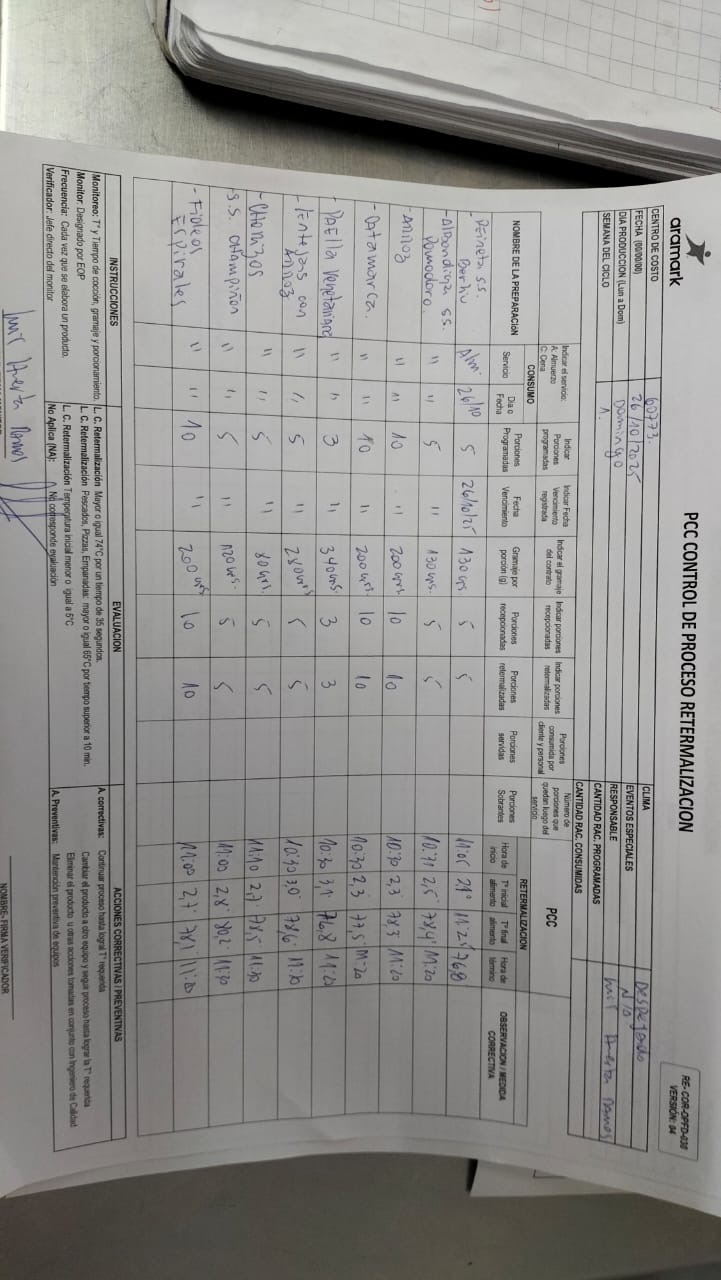 aramark
PCC CONTROL DE PROCESO RETERMALIZACION
RE-COR-OPFD-038
VERSIÓN: 04
CENTRO DE COSTO 60773.
FECHA (00/00/00) 26/10/2025
DIA PRODUCCION (Lun a Dom) Domingo
SEMANA DEL CICLO 1.
CLIMA Despejado
EVENTOS ESPECIALES N/A
RESPONSABLE Luis Huerta Ramos
CANTIDAD RAC. PROGRAMADAS
CANTIDAD RAC. CONSUMIDAS
Indicar el servicio: A: Almuerzo C: Cena
Indicar Porciones programadas
Indicar Fecha Vencimiento registrada
Indicar el gramaje del contrato
Indicar porciones recepcionadas
Indicar porciones retermalizadas
Porciones consumida por cliente y personal
Número de porciones que quedan luego del servicio
PCC
CONSUMO
RETERMALIZACION
NOMBRE DE LA PREPARACIóN
Servicio
Dia o Fecha
Porciones Programadas
Fecha Vencimiento
Gramaje por porción (g)
Porciones recepcionadas
Porciones retermalizadas
Porciones servidas
Porciones Sobrantes
Hora de inicio
Tº inicial alimento
Tº final alimento
Hora de término
OBSERVACION / MEDIDA CORRECTIVA
- Reineta s.s. Alm. 26/10 5 26/10/25 130 grs 5 5 11:05 76,8
- Albondiga s.s. Pomodoro. " " 5 " 130 grs. 5 5 2,5 78,4 11:20
- Arroz " " 10 " 200 grs 10 10 10:30 2,3 78,3 11:20
- Catamarca. " " 10 " 200 grs. 10 10 10:30 2,3 77,5 11:20
- Paella Vegetariana " " 3 " 340 grs. 3 3 10:30 3,1 76,8 11:20
- Lentejas con Arroz " " 5 " 280 grs 5 5 10:30 3,0 78,6 11:30
" " 5 " 80 grs. 5 5 11:10 2,7 78,5 11:30
- s.s. champiñon " " 5 " 120 grs. 5 5 11:00 2,8 80,2 11:30
- Fideos Espirales " " 10 " 200 grs. 10 10 11:00 2,7 78,1 11:20
INSTRUCCIONES
Monitoreo: Tº y Tiempo de cocción, gramaje y porcionamiento.
Monitor: Designado por EOP
Frecuencia: Cada vez que se elabora un producto.
Verificador: Jefe directo del monitor
EVALUACION
L. C. Retermalización Mayor o igual 74°C por un tiempo de 35 segundos.
L. C. Retermalización Pescados, Pizzas, Empanadas: mayor o igual 65°C por tiempo superior a 10 min.
L. C. Retermalización Temperatura inicial menor o igual a 5°C
No Aplica (NA): No corresponde evaluación
ACCIONES CORRECTIVAS / PREVENTIVAS
A. correctivas: Continuar proceso hasta lograr Tº requerida
Cambiar el producto a otro equipo y seguir proceso hasta lograr la Tº requerida
Eliminar el producto u otras acciones tomadas en conjunto con Ingeniero de Calidad.
A. Preventivas: Mantención preventiva de equipos
Luis Huerta Ramos
NOMBRE- FIRMA VERIFICADOR